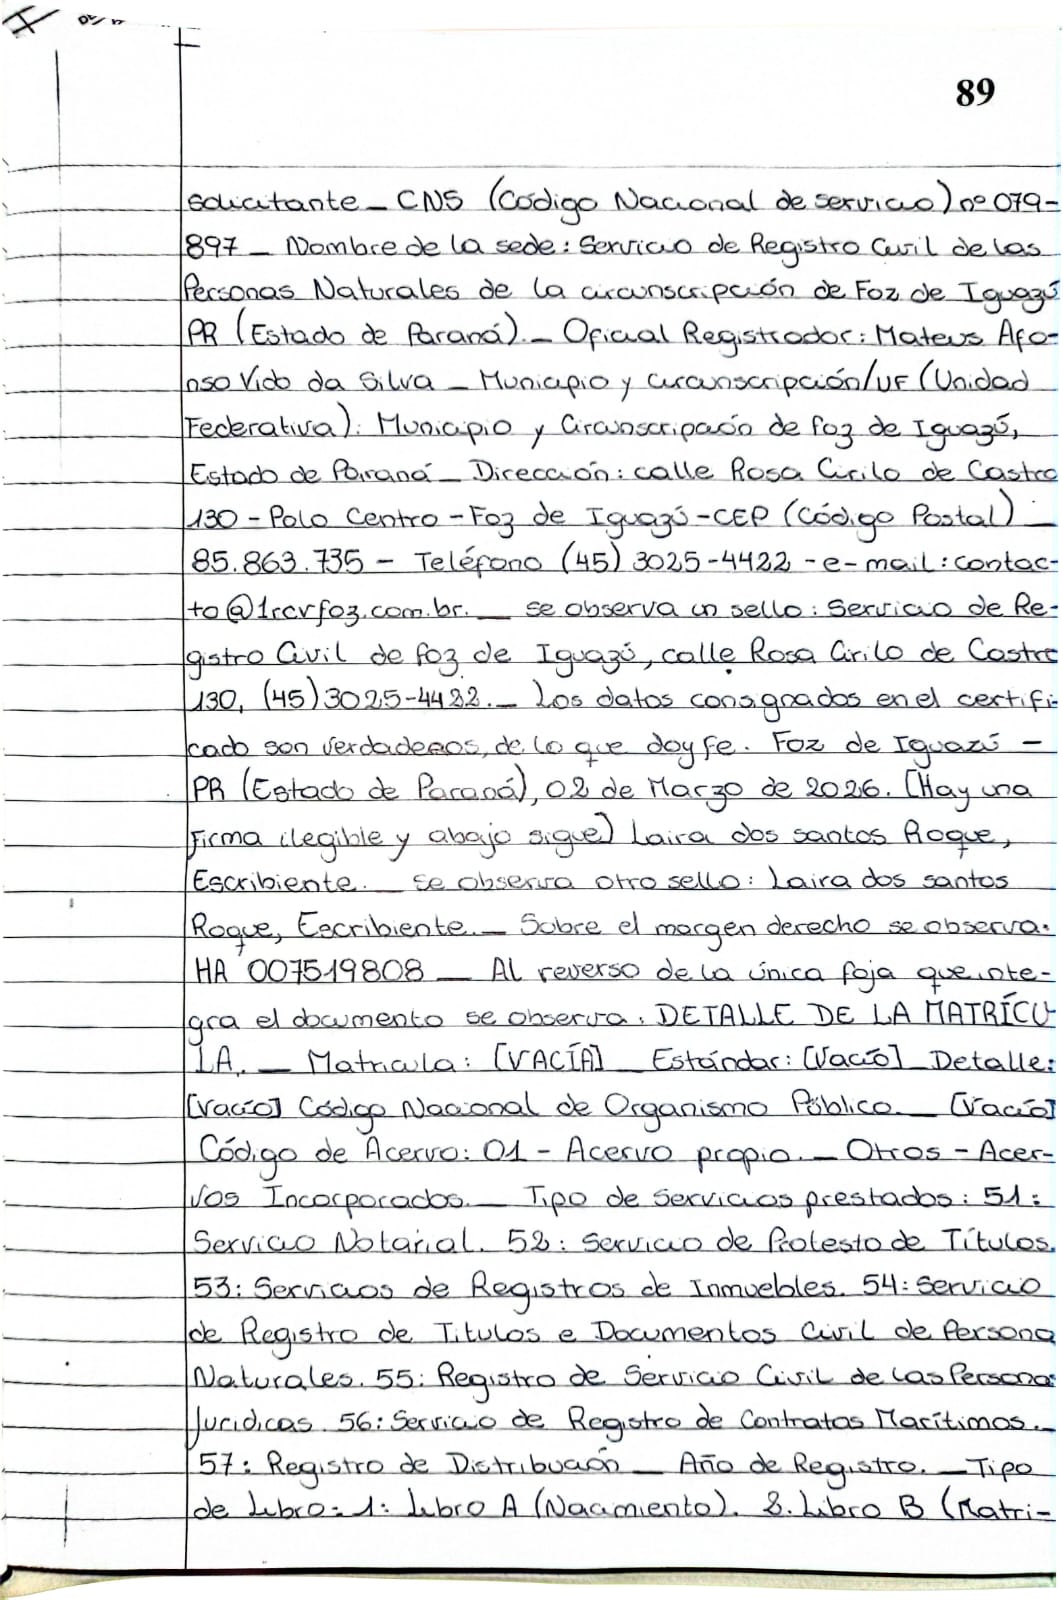 89
solicitante _ CNS (Código Nacional de servicio) nº 079-
897 _ Nombre de la sede: Servicio de Registro Civil de las
Personas Naturales de la circunscripción de Foz de Iguazú
PR (Estado de Paraná). _ Oficial Registrador: Mateus Afo-
nso Vido da Silva _ Municipio y circunscripción/UF (Unidad
Federativa): Municipio y Circunscripción de foz de Iguazú,
Estado de Paraná _ Dirección: calle Rosa Cirilo de Castro
130 - Polo Centro - Foz de Iguazú - CEP (Código Postal) _
85.863.735 - Teléfono (45) 3025-4422 - e-mail: contac-
to@1rcvfoz.com.br. _ se observa un sello: Servicio de Re-
gistro Civil de foz de Iguazú, calle Rosa Cirilo de Castro
130, (45) 3025-4422. _ Los datos consignados en el certifi-
cado son verdaderos, de lo que doy fe. Foz de Iguazú -
PR (Estado de Paraná), 02 de Marzo de 2026. [Hay una
firma ilegible y abajo sigue] Laira dos santos Roque,
Escribiente. _ se observa otro sello: Laira dos santos
Roque, Escribiente. _ Sobre el margen derecho se observa:
HA 007519808 _ Al reverso de la única foja que inte-
gra el documento se observa: DETALLE DE LA MATRÍCU-
LA. _ Matricula: [VACÍA] _ Estándar: [Vacío] _ Detalle:
[Vacío] Código Nacional de Organismo Público. _ [Vacío]
Código de Acervo: 01 - Acervo propio. _ Otros - Acer-
vos Incorporados. _ Tipo de Servicios prestados: 51:
Servicio Notarial. 52: Servicio de Protesto de Títulos.
53: Servicios de Registros de Inmuebles. 54: Servicio
de Registro de Titulos e Documentos Civil de Persona
Naturales. 55: Registro de Servicio Civil de las Personas
Jurídicas. 56: Servicio de Registro de Contratos Marítimos. _
57: Registro de Distribución _ Año de Registro. _ Tipo
de Libro: 1: Libro A (Nacimiento). 2. Libro B (Matri-